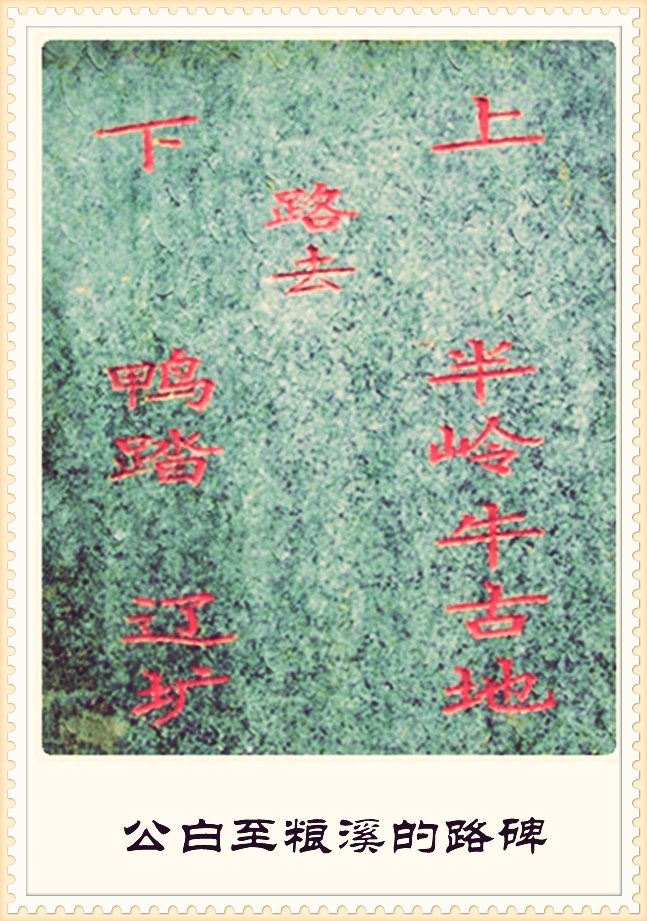 上
半岭牛古地
路去
下
鸭踏
辽圹
公白至粮溪的路碑